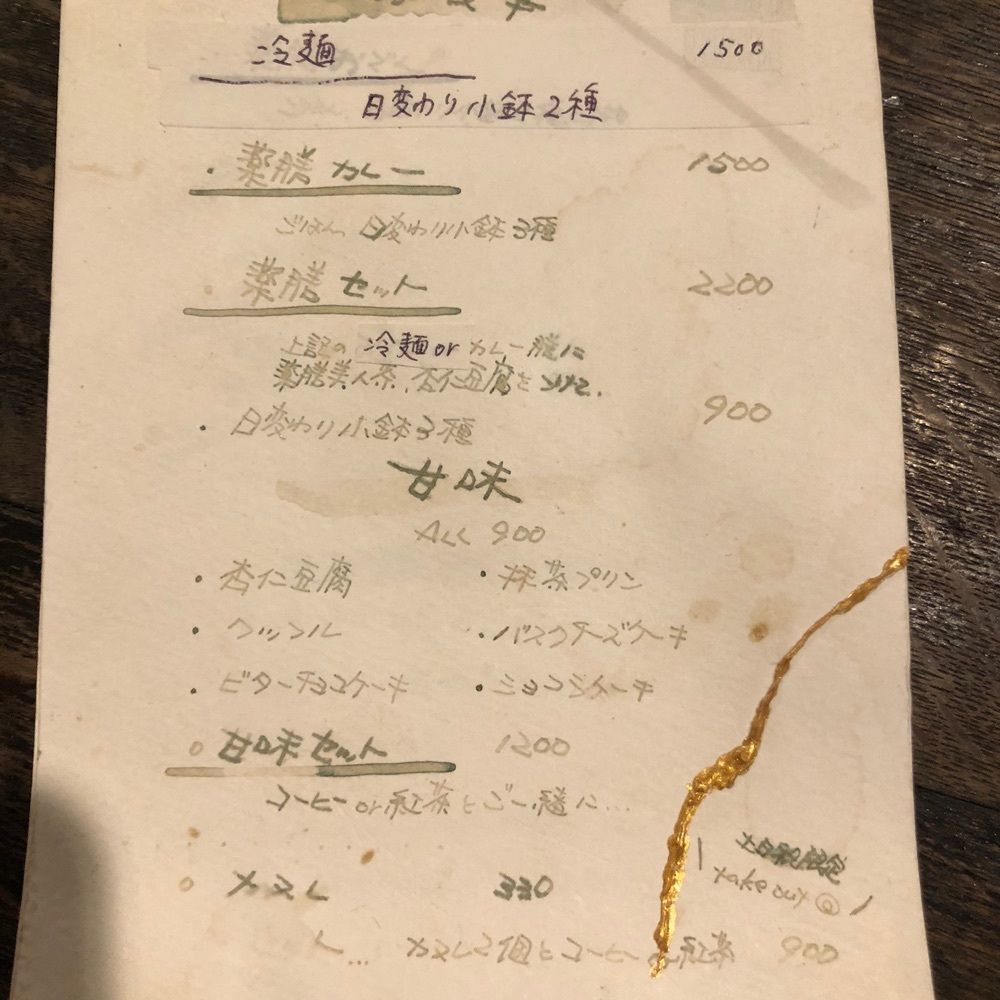 冷麺 1500
日変わり小鉢2種
・薬膳カレー 1500
ごはん、日変わり小鉢3種
薬膳セット 2200
上記の 冷麺or カレー膳に
薬膳美人茶、杏仁豆腐を
・日変わり小鉢3種 900
甘味
ALL 900
・杏仁豆腐 ・抹茶プリン
・ワッフル ・バスクチーズケーキ
・ビターチョコケーキ ・ショコラケーキ
○甘味セット 1200
コーヒーor紅茶とご一緒に...
○カヌレ 330
take out
ト... カヌレ2個とコーヒーor紅茶 900